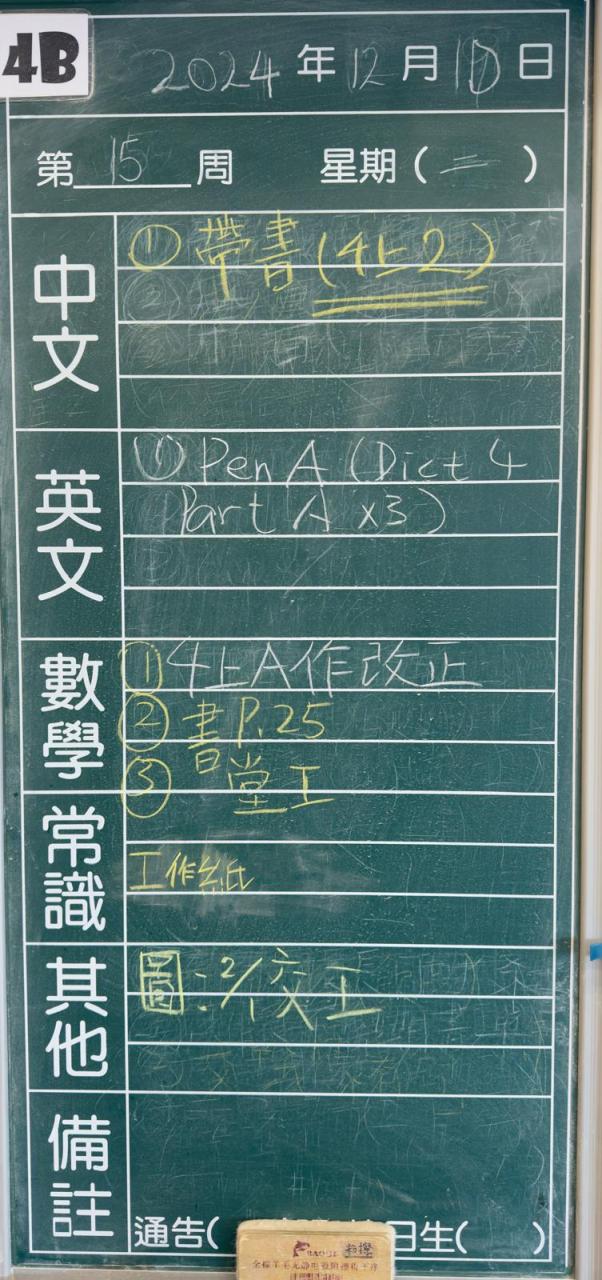 4B
2024 年 12 月 10 日
第 15 周 星期 ( 二 )
中文
① 帶書 (4上2)
英文
① Pen A (Dict 4
Part A x3)
數學
① 4上A作改正
② 書 P.25
③ 堂工
常識
工作紙
其他
圖: 2/1 交工
備註
通告( 日生( )